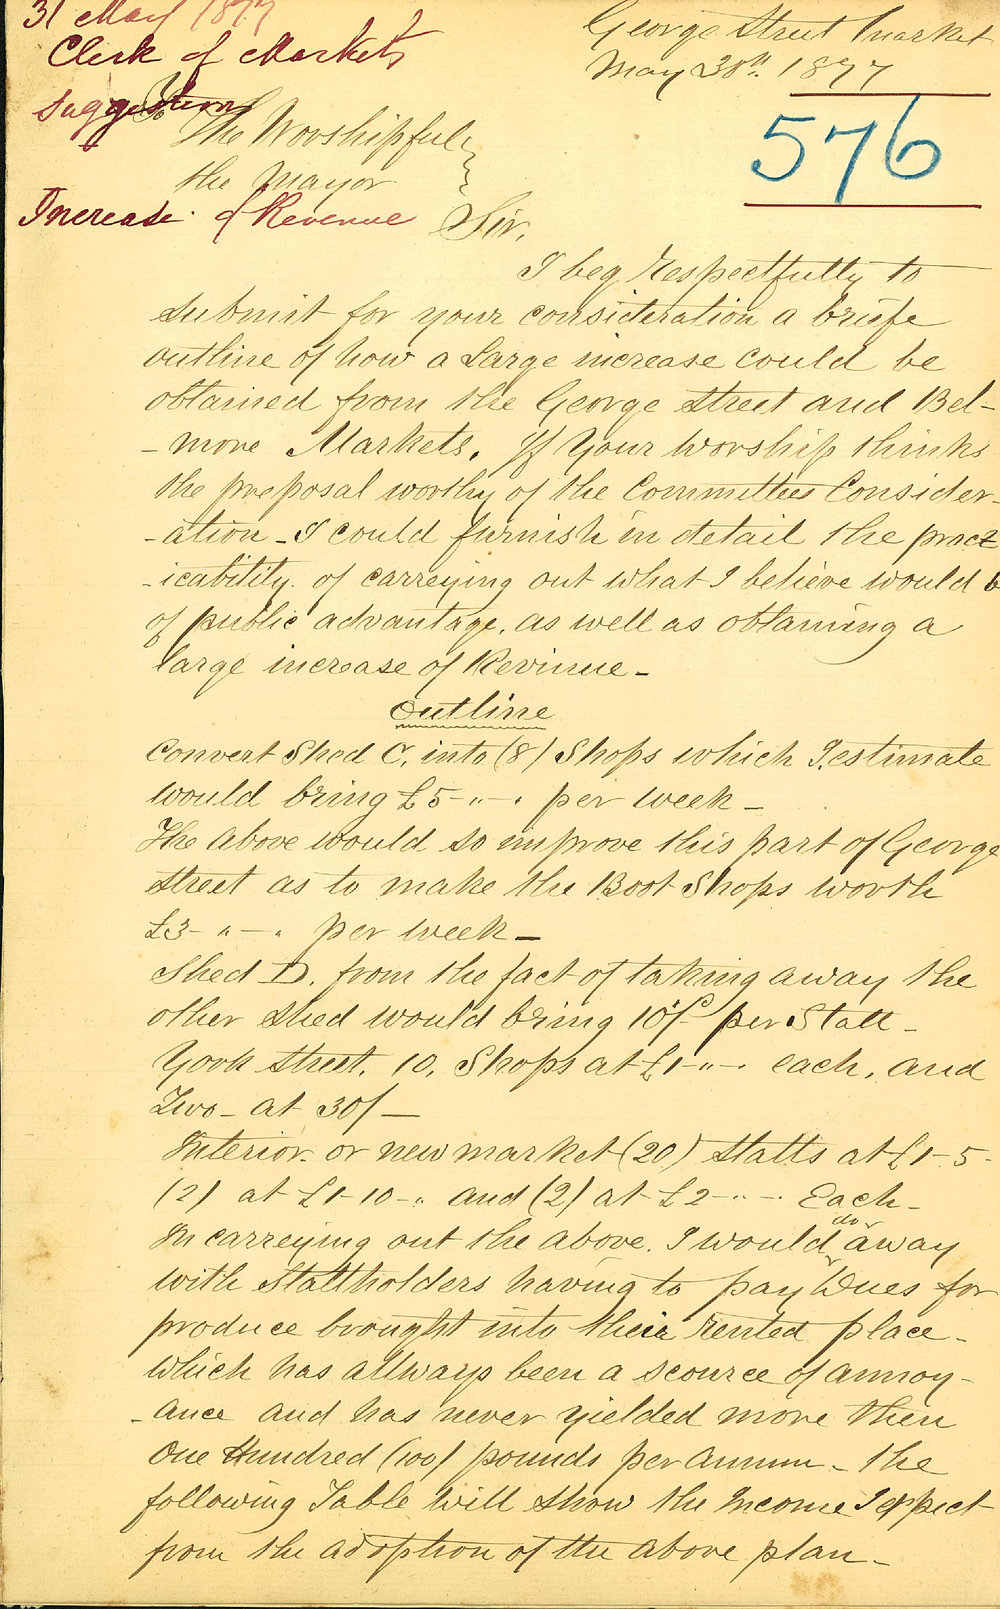 31 May 1877
Clerk of Markets
Suggestion
Increase of Revenue
George Street Market
May 30th. 1877
576
To The Worshipful
the Mayor
Sir,
I beg respectfully to
submit for your consideration a briefe
outline of how a Large increase could be
obtained from the George Street and Bel-
- more Markets. If Your worship thinks
the preposal worthy of the Committees Consider-
- ation - I could furnish in detail the pract
- icability of carreying out what I believe would b
of public advantage, as well as obtaining a
large increase of Revinue -
Outline
Convert Shed C, into (8) Shops which I estimate
would bring £5-"-" per week -
The above would so improve this part of George
Street as to make the Boot Shops worth
£3-"-" per week -
Shed D. from the fact of taking away the
other shed would bring 10/- per Stall -
York Street. 10, Shops at £1-"-" each, and
Two - at 30/ -
Interior or new market (20) Stalls at £1-5-
(2) at £1-10-" and (2) at £2-"-" Each -
In carreying out the above. I would do away
with Stallholders having to pay Dues for
produce brought into their rented place -
which has allways been a scource of annoy-
- ance and has never yielded more then
One Hundred (100) pounds per annum - the
following Table will show the Income I expect
from the adoption of the above plan -